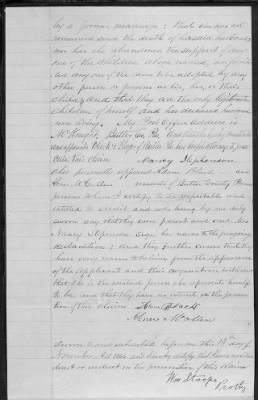 by a former marriage; that she has not
remarried since the death of her said husband
nor has she abandoned the support of any
one of the children above named, or permit-
ted any one of the same to be adopted by any
other person or persons as his, her, or their
child; and that they are the only legitimate
children of herself and her deceased husband
now living. My Post Office Address is
Butler Co. Pa. and she hereby constitutes
and appoints Black & of Butler Pa her Attorneys to prose-
cute this claim
Nancy Stephenson
Also personally appeared Adam Black and
residents of Butler County Penn
persons whom I certify to be respectable and
entitled to credit and who being by me duly
sworn say that they were present and saw Mrs
Nancy Stephenson sign her name to the foregoing
declaration; and they further swear that they
have every reason to believe from the appearance
of the applicant and their acquaintance with her
that she is the identical person she represents herself
to be and that they have no interest in the prosecu-
tion of this claim. Adam Black
Sworn to and subscribed before me this 18th day of
November A.D. and I hereby certify that I have no interest
direct or indirect in the prosecution of this claim
Wm Stoops
Prothy